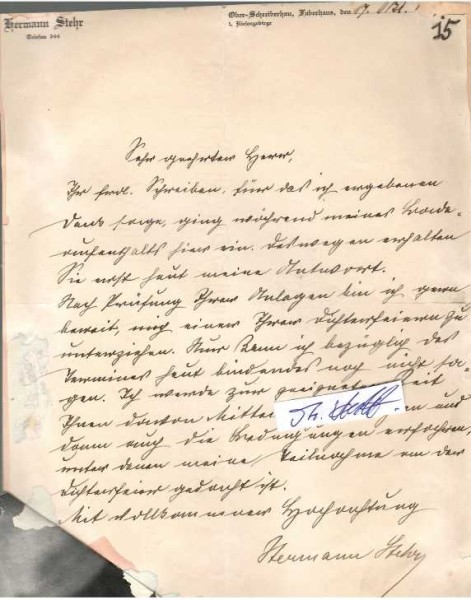 Hermann Stehr
Telefon 204
Ober-Schreiberhau, Faberhaus, den
i. Riesengebirge
15
Sehr geehrter Herr,
Ihr frdl. Schreiben, für das ich ergebenen
Dank sage, ging während meines Bade-
aufenthalts hier ein. Deswegen erhalten
Sie erst heut meine Antwort.
Nach Prüfung Ihrer Anlagen bin ich gern
bereit, mich einer Ihrer Dichterfeiern zu
unterziehen. Nur kann ich bezüglich des
Termines heut bindendes noch nicht sa-
gen. Ich werde zur geeigneten Zeit
Ihnen davon und
dann auch die Bedingungen erfahren,
unter denen meine Teilnahme an der
Dichterfeier gedacht ist.
Mit vollkommener Hochachtung
Hermann Stehr